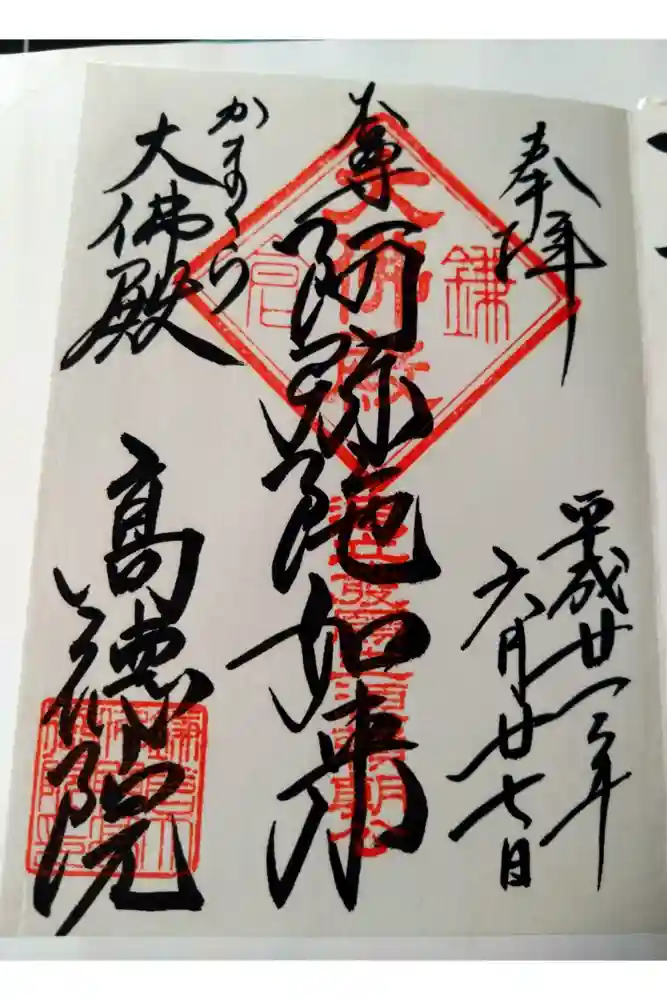 奉拝
平成廿三年
六月廿七日
本尊阿弥陀如来
かまくら
大佛殿
高徳院
鎌倉
大佛殿